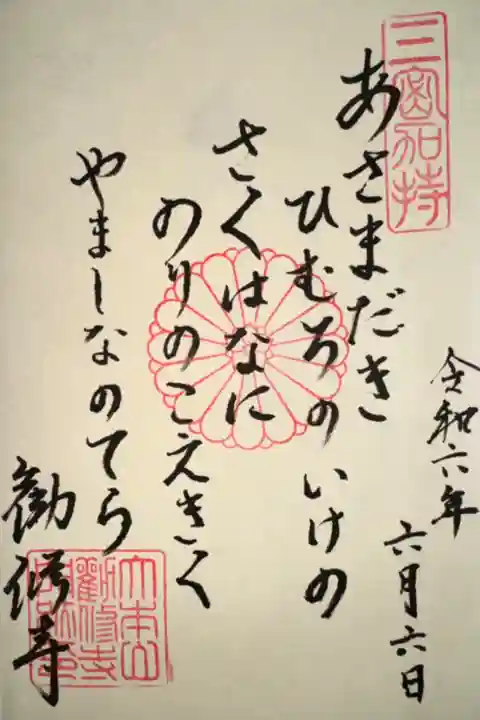 三密加持
令和六年
六月六日
あさまだき
ひむろのいけの
さくはなに
のりのこえきく
やましなのてら
勧修寺
大本山
勧修寺